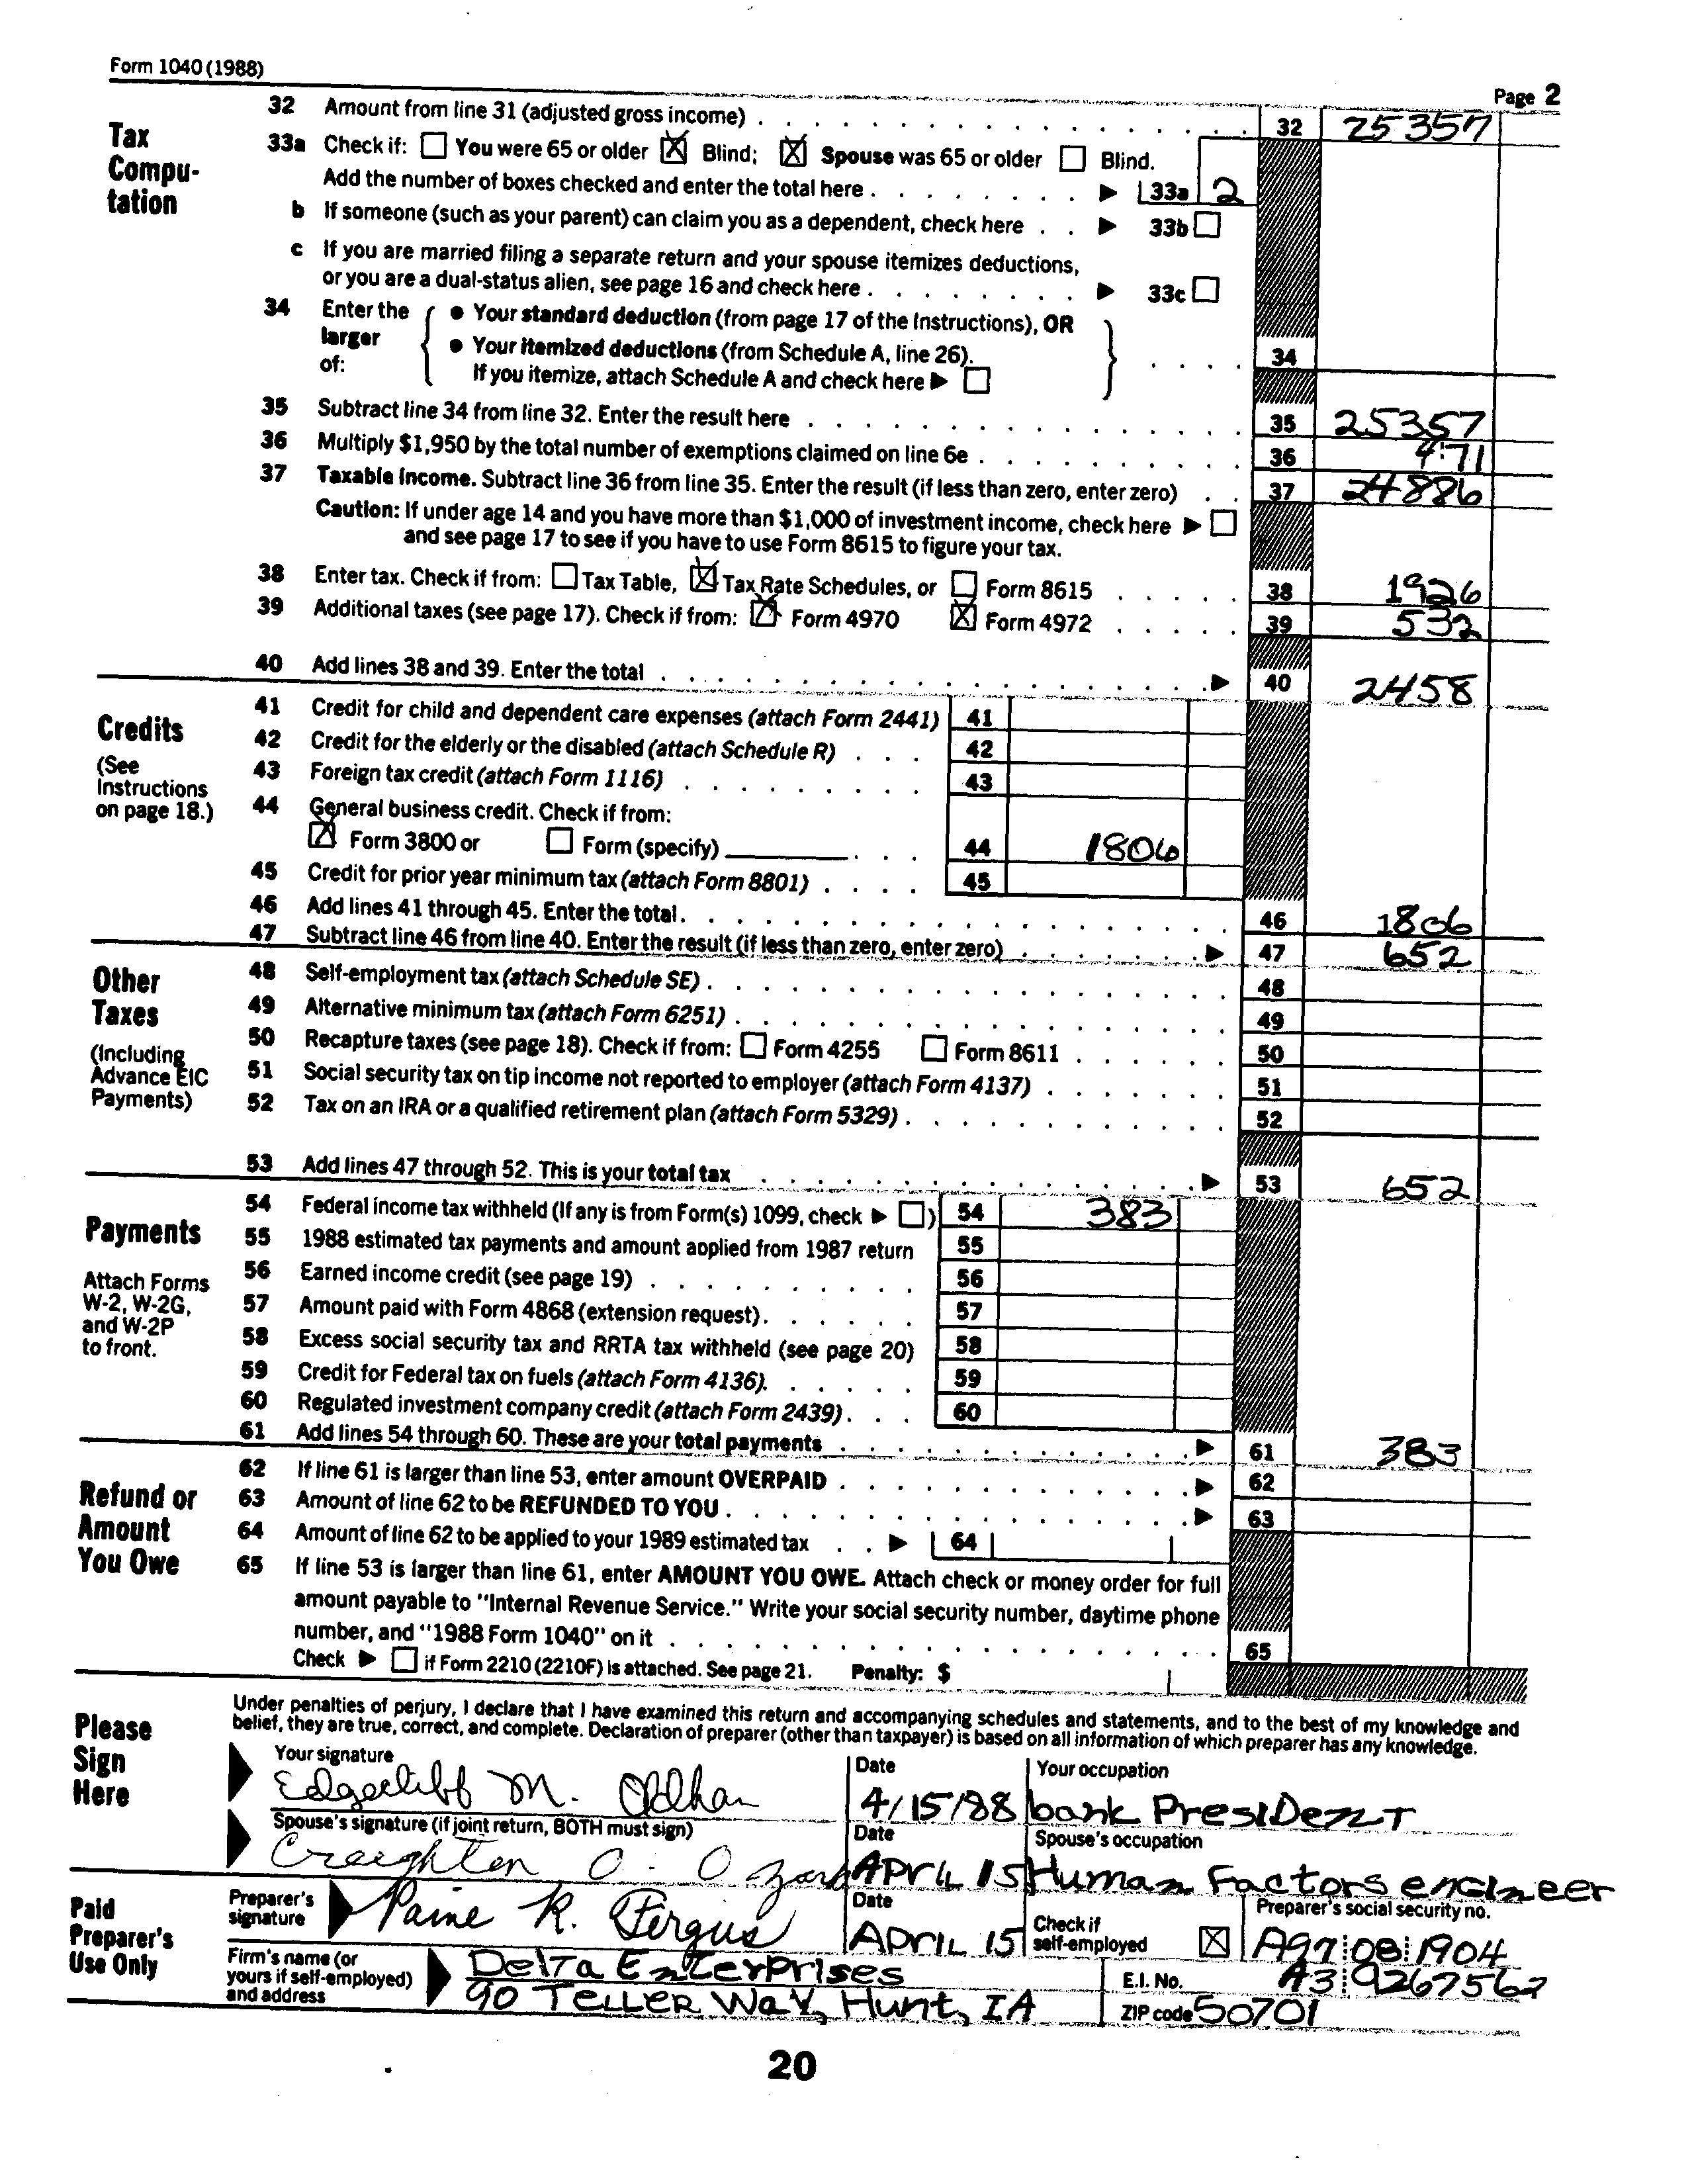 Form 1040 (1988)
Page 2
Tax Compu-tation
32 Amount from line 31 (adjusted gross income) . . . . 32 25357
33a Check if: You were 65 or older X Blind; X Spouse was 65 or older Blind.
Add the number of boxes checked and enter the total here . . . . 33a 2
b If someone (such as your parent) can claim you as a dependent, check here . . 33b
c If you are married filing a separate return and your spouse itemizes deductions,
or you are a dual-status alien, see page 16 and check here . . . . 33c
34 Enter the larger of:
• Your standard deduction (from page 17 of the Instructions), OR
• Your itemized deductions (from Schedule A, line 26).
If you itemize, attach Schedule A and check here
. . . . 34
35 Subtract line 34 from line 32. Enter the result here . . . . 35 25357
36 Multiply $1,950 by the total number of exemptions claimed on line 6e . . . . 36 471
37 Taxable income. Subtract line 36 from line 35. Enter the result (if less than zero, enter zero) . . 37 24886
Caution: If under age 14 and you have more than $1,000 of investment income, check here
and see page 17 to see if you have to use Form 8615 to figure your tax.
38 Enter tax. Check if from: Tax Table, X Tax Rate Schedules, or Form 8615 . . . . 38 1926
39 Additional taxes (see page 17). Check if from: X Form 4970 X Form 4972 . . . . 39 532
40 Add lines 38 and 39. Enter the total . . . . 40 2458
Credits
(See Instructions on page 18.)
41 Credit for child and dependent care expenses (attach Form 2441) 41
42 Credit for the elderly or the disabled (attach Schedule R) . . . 42
43 Foreign tax credit (attach Form 1116) . . . . 43
44 General business credit. Check if from:
X Form 3800 or Form (specify) . . . 44 1806
45 Credit for prior year minimum tax (attach Form 8801) . . . . 45
46 Add lines 41 through 45. Enter the total . . . . 46 1806
47 Subtract line 46 from line 40. Enter the result (if less than zero, enter zero) . . . . 47 652
Other Taxes
(Including Advance EIC Payments)
48 Self-employment tax (attach Schedule SE) . . . . 48
49 Alternative minimum tax (attach Form 6251) . . . . 49
50 Recapture taxes (see page 18). Check if from: Form 4255 Form 8611 . . . . 50
51 Social security tax on tip income not reported to employer (attach Form 4137) . . . . 51
52 Tax on an IRA or a qualified retirement plan (attach Form 5329) . . . . 52
53 Add lines 47 through 52. This is your total tax . . . . 53 652
Payments
Attach Forms W-2, W-2G, and W-2P to front.
54 Federal income tax withheld (If any is from Form(s) 1099, check ) 54 383
55 1988 estimated tax payments and amount applied from 1987 return 55
56 Earned income credit (see page 19) . . . . 56
57 Amount paid with Form 4868 (extension request) . . . . 57
58 Excess social security tax and RRTA tax withheld (see page 20) 58
59 Credit for Federal tax on fuels (attach Form 4136) . . . . 59
60 Regulated investment company credit (attach Form 2439) . . . 60
61 Add lines 54 through 60. These are your total payments . . . . 61 383
Refund or Amount You Owe
62 If line 61 is larger than line 53, enter amount OVERPAID . . . . 62
63 Amount of line 62 to be REFUNDED TO YOU . . . . 63
64 Amount of line 62 to be applied to your 1989 estimated tax . . 64
65 If line 53 is larger than line 61, enter AMOUNT YOU OWE. Attach check or money order for full
amount payable to "Internal Revenue Service." Write your social security number, daytime phone
number, and "1988 Form 1040" on it . . . . 65
Check if Form 2210 (2210F) is attached. See page 21. Penalty: $
Please Sign Here
Under penalties of perjury, I declare that I have examined this return and accompanying schedules and statements, and to the best of my knowledge and
belief, they are true, correct, and complete. Declaration of preparer (other than taxpayer) is based on all information of which preparer has any knowledge.
Your signature Date Your occupation
Edgecliff M. Oldhan 4/15/88 bank PresiDenT
Spouse's signature (if joint return, BOTH must sign) Date Spouse's occupation
Creighton O. Ozark APriL 15 Human Factors engineer
Paid Preparer's Use Only
Preparer's signature Date Check if self-employed Preparer's social security no.
Paine R. Fergus APRIL 15 X A97 08 1904
Firm's name (or yours if self-employed) and address
Delta Enterprises E.I. No. A3 9267562
90 TeLLER Way, Hunt, IA ZIP code 50701
20